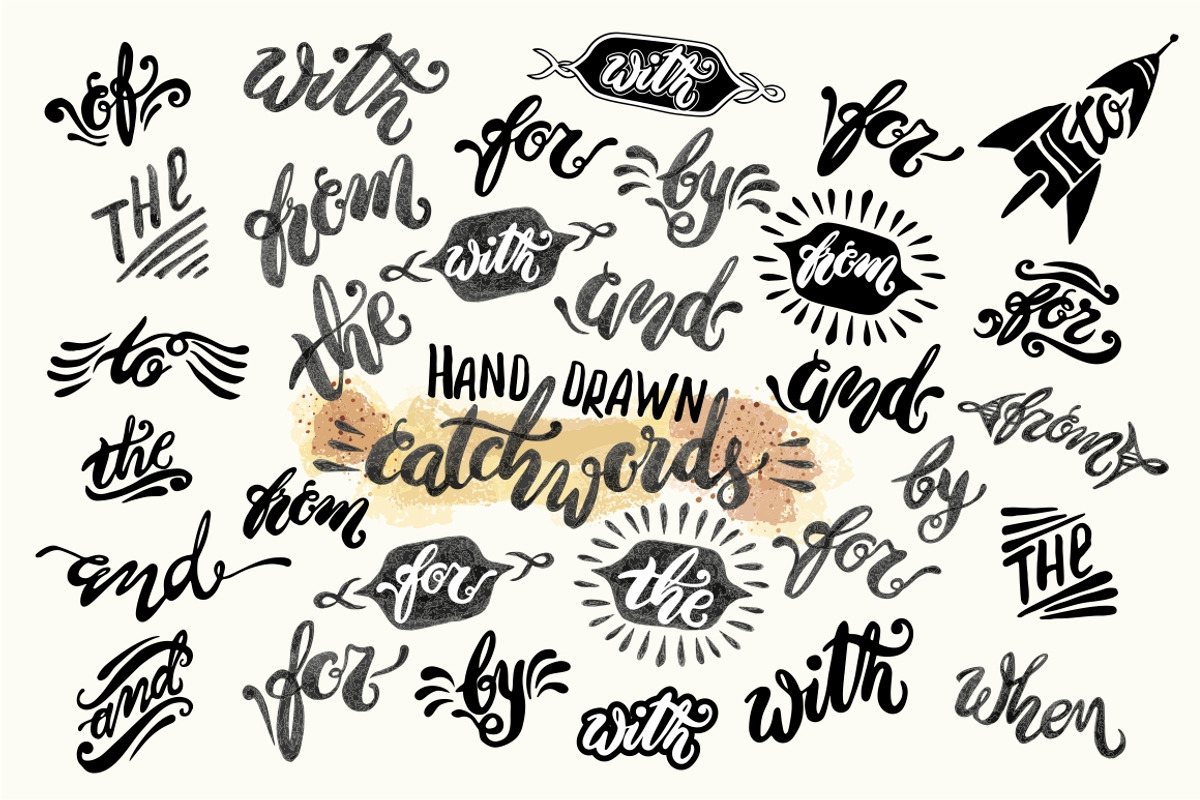 of
with
with
for
for
into
THE
from
by
with
from
and
the
for
to
HAND DRAWN
catchwords
and
from
the
by
from
and
for
the
for
THE
and
for
by
with
with
When